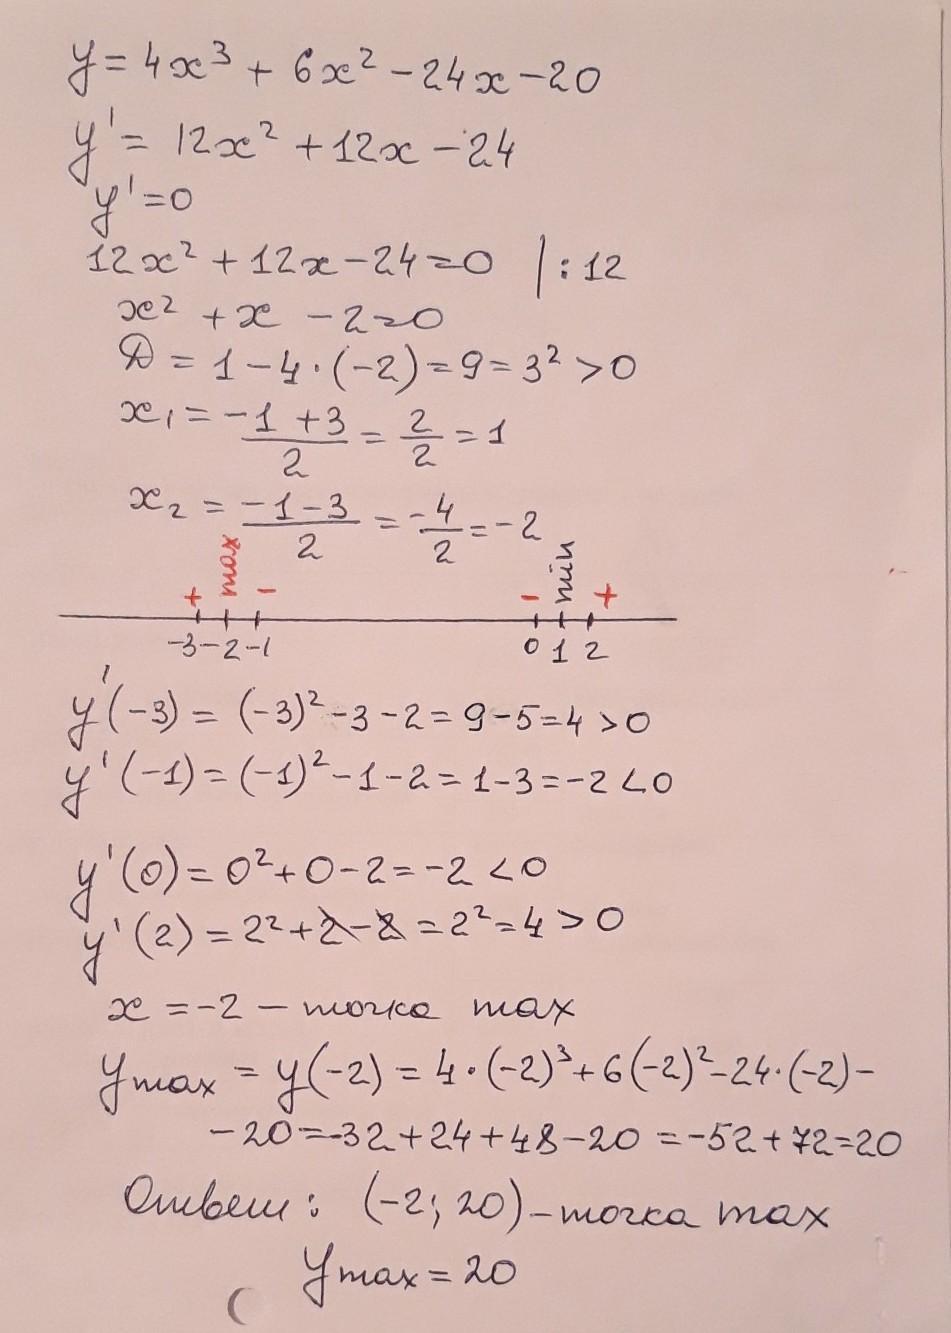 y = 4x³ + 6x² - 24x - 20
y' = 12x² + 12x - 24
y' = 0
12x² + 12x - 24 = 0 | : 12
x² + x - 2 = 0
D = 1 - 4 · (-2) = 9 = 3² > 0
x₁ = (-1 + 3)/2 = 2/2 = 1
x₂ = (-1 - 3)/2 = -4/2 = -2
+ max - - min +
-3 -2 -1 0 1 2
y'(-3) = (-3)² - 3 - 2 = 9 - 5 = 4 > 0
y'(-1) = (-1)² - 1 - 2 = 1 - 3 = -2 < 0
y'(0) = 0² + 0 - 2 = -2 < 0
y'(2) = 2² + 2 - 2 = 2² = 4 > 0
x = -2 - точка max
ymax = y(-2) = 4 · (-2)³ + 6(-2)² - 24 · (-2) -
- 20 = -32 + 24 + 48 - 20 = -52 + 72 = 20
Ответ: (-2; 20) - точка max
ymax = 20